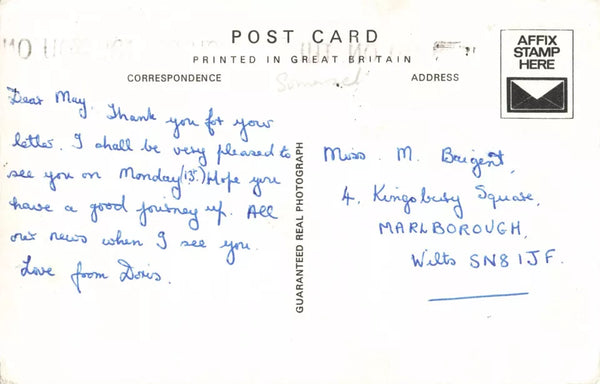 POST CARD
PRINTED IN GREAT BRITAIN
CORRESPONDENCE
ADDRESS
AFFIX
STAMP
HERE
Somerset
Dear May. Thank you for your
letter. I shall be very pleased to
see you on Monday (15.) Hope you
have a good journey up. All
our news when I see you.
Love from Doris.
GUARANTEED REAL PHOTOGRAPH
Miss. M. Brigent,
4, Kingsbury Square,
MARLBOROUGH,
Wilts SN8 1JF.